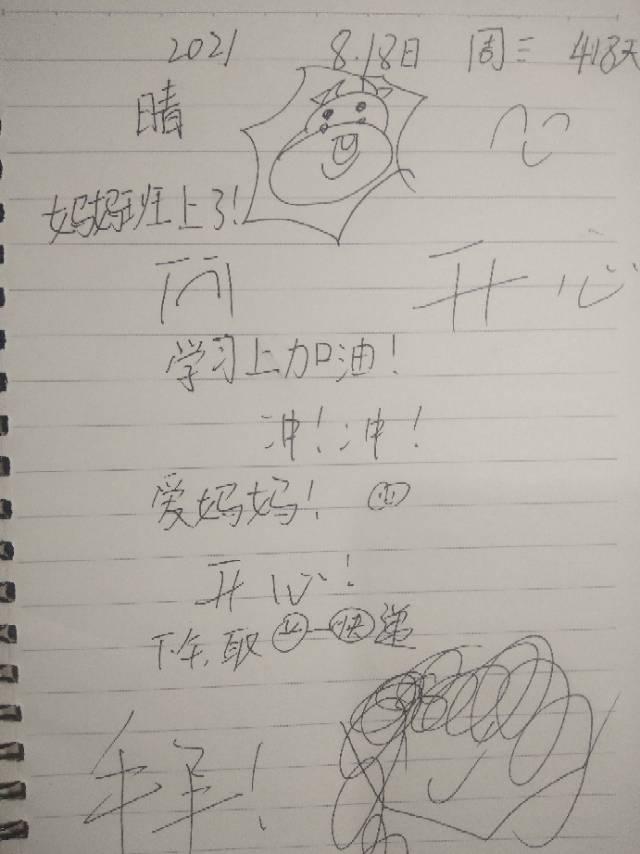 2021 8.18日 周三 418天
晴
妈妈班上了!
开心
学习上加油!
冲!冲!
爱妈妈!
开心!
下午,取 快递